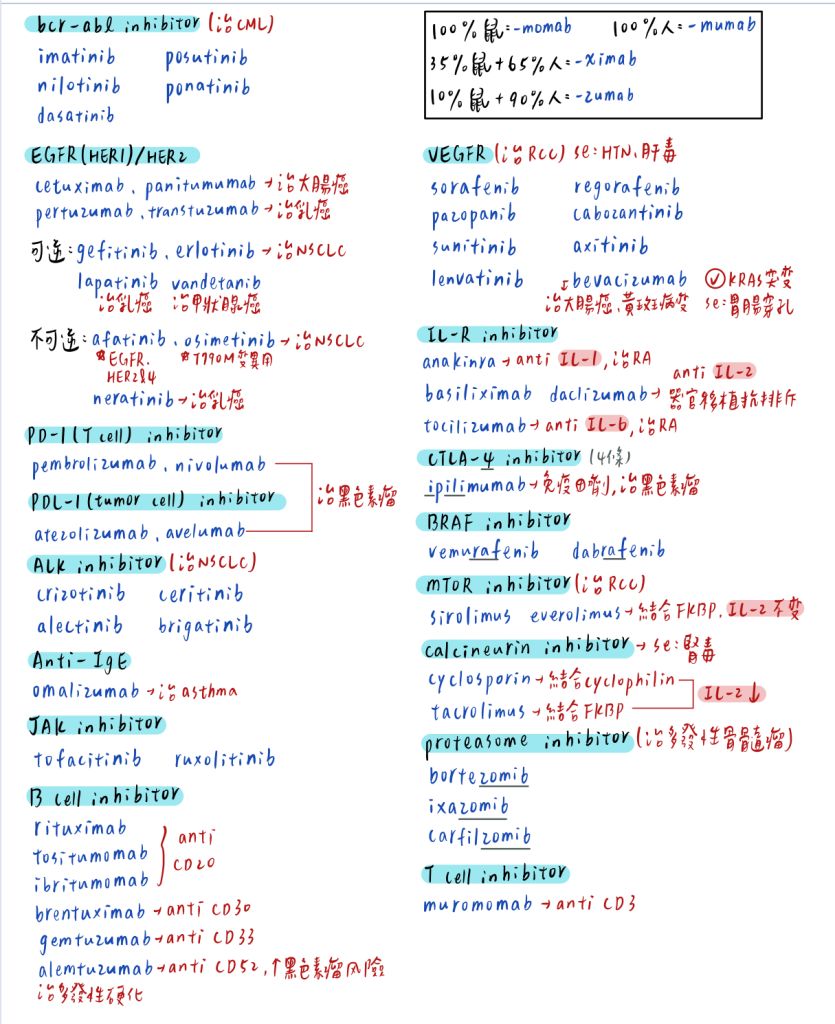 bcr-abl inhibitor (治CML)
imatinib posutinib
nilotinib ponatinib
dasatinib
EGFR(HER1)/HER2
cetuximab、panitumumab→治大腸癌
pertuzumab、transtuzumab→治乳癌
可逆:gefitinib、erlotinib→治NSCLC
lapatinib vandetanib
治乳癌 治甲狀腺癌
不可逆:afatinib、osimetinib→治NSCLC
*EGFR. *T790M變異用
HER2&4
neratinib→治乳癌
PD-1(T cell) inhibitor
pembrolizumab、nivolumab
治黑色素瘤
PDL-1(tumor cell) inhibitor
atezolizumab、avelumab
ALK inhibitor(治NSCLC)
crizotinib ceritinib
alectinib brigatinib
Anti-IgE
omalizumab→治asthma
JAK inhibitor
tofacitinib ruxolitinib
B cell inhibitor
rituximab
tositumomab
ibritumomab
anti
CD20
brentuximab→anti CD30
gemtuzumab→anti CD33
alemtuzumab→anti CD52,↑黑色素瘤風險
治多發性硬化
100%鼠=-momab 100%人=-mumab
35%鼠+65%人=-ximab
10%鼠+90%人=-zumab
VEGFR(治RCC) se:HTN、肝毒
sorafenib regorafenib
pazopanib cabozantinib
sunitinib axitinib
lenvatinib ↓bevacizumab ✓KRAS突變
治大腸癌、黃斑病變 se:胃腸穿孔
IL-R inhibitor
anakinra→anti IL-1,治RA
anti IL-2
basiliximab daclizumab→器官移植抗排斥
tocilizumab→anti IL-6,治RA
CTLA-4 inhibitor (4條)
ipilimumab→免疫用劑,治黑色素瘤
BRAF inhibitor
vemurafenib dabrafenib
mTOR inhibitor(治RCC)
sirolimus everolimus→結合FKBP.IL-2不變
calcineurin inhibitor→se:腎毒
cyclosporin→結合cyclophilin
IL-2↓
tacrolimus→結合FKBP
proteasome inhibitor(治多發性骨髓瘤)
bortezomib
ixazomib
carfilzomib
T cell inhibitor
muromomab→anti CD3